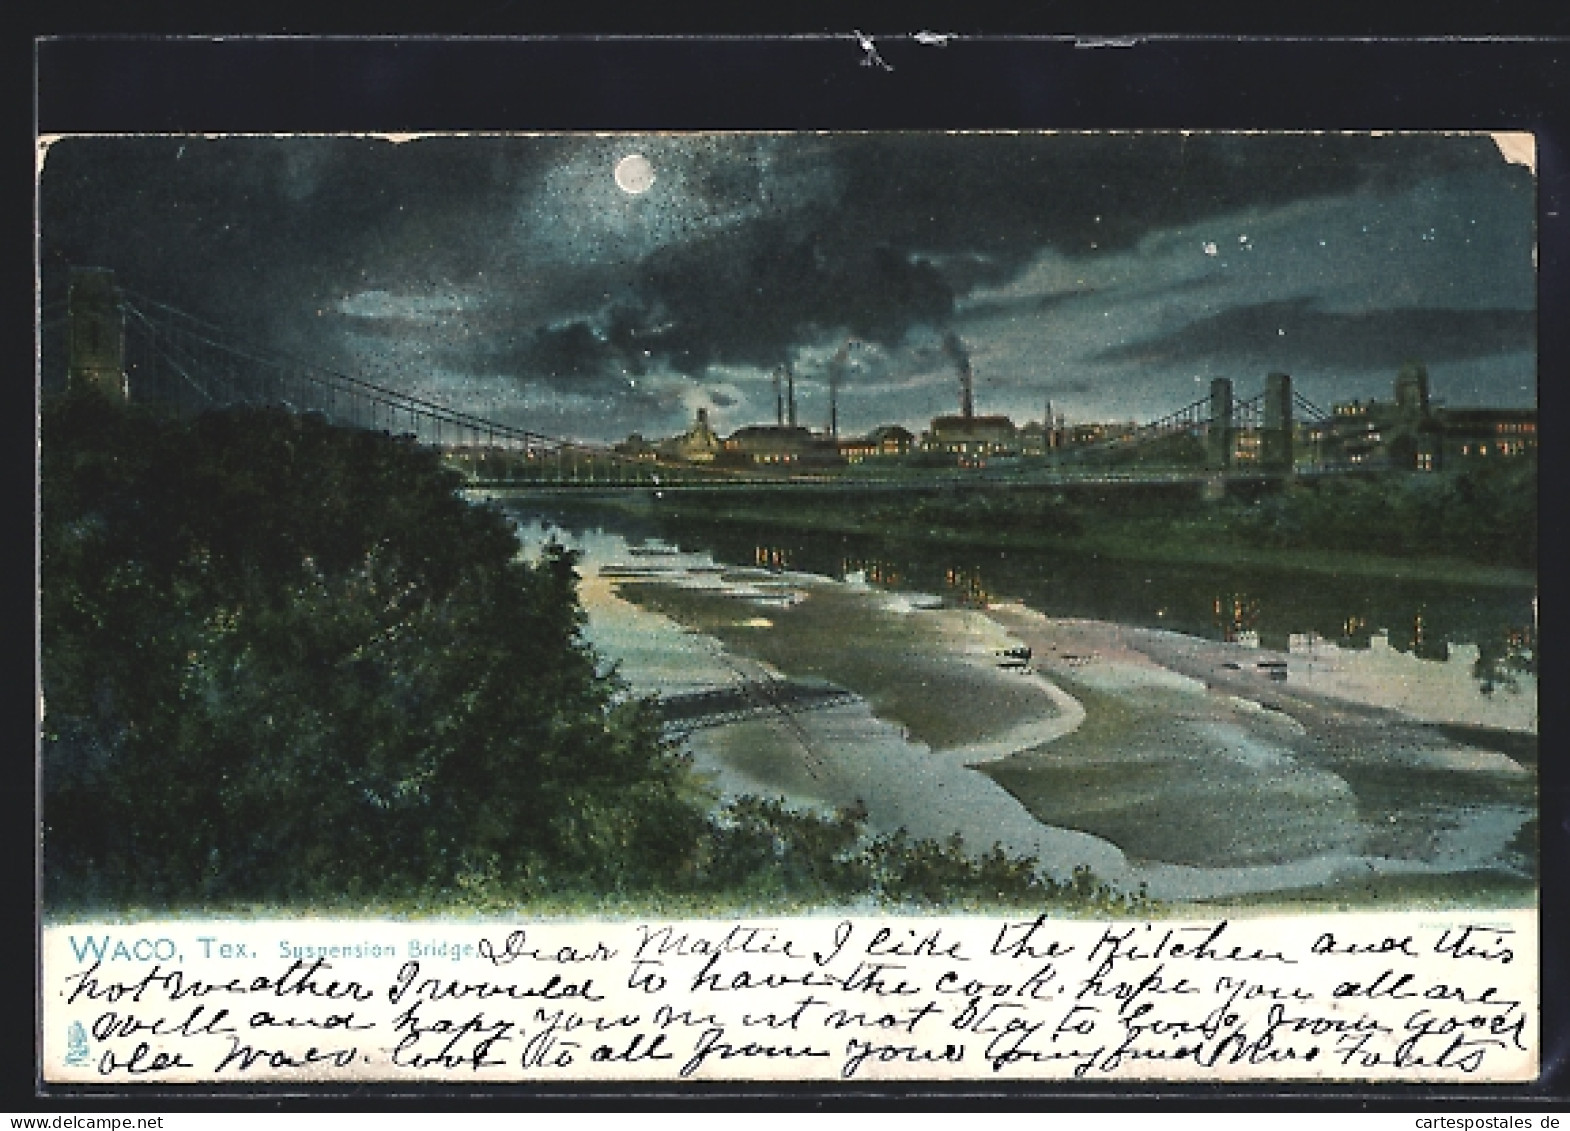 WACO, Tex. Suspension Bridge. Dear Mattie I like the Kitchen and this
hot weather I would to have the cook. hope you all are
well and happy. you must not stay to long from good
old Waco. love to all from your loving friend Mrs
cartespostales de